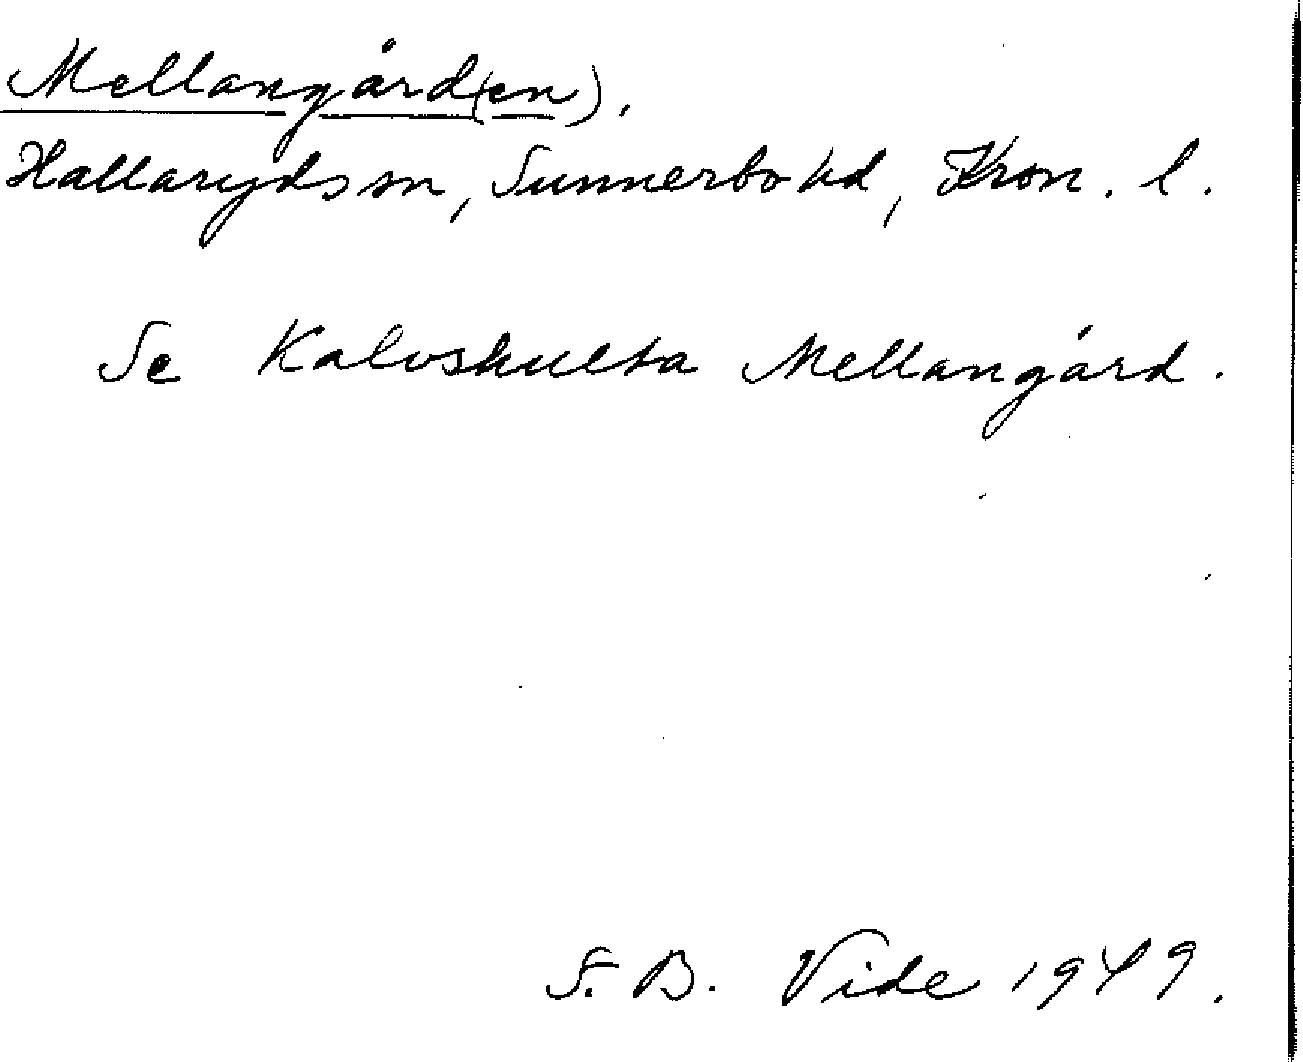 Mellangård(en).
Hallaryds sn, Sunnerbo hd, Kron. l.
Se Kalvshulta Mellangård.
S. B. Vide 1949.